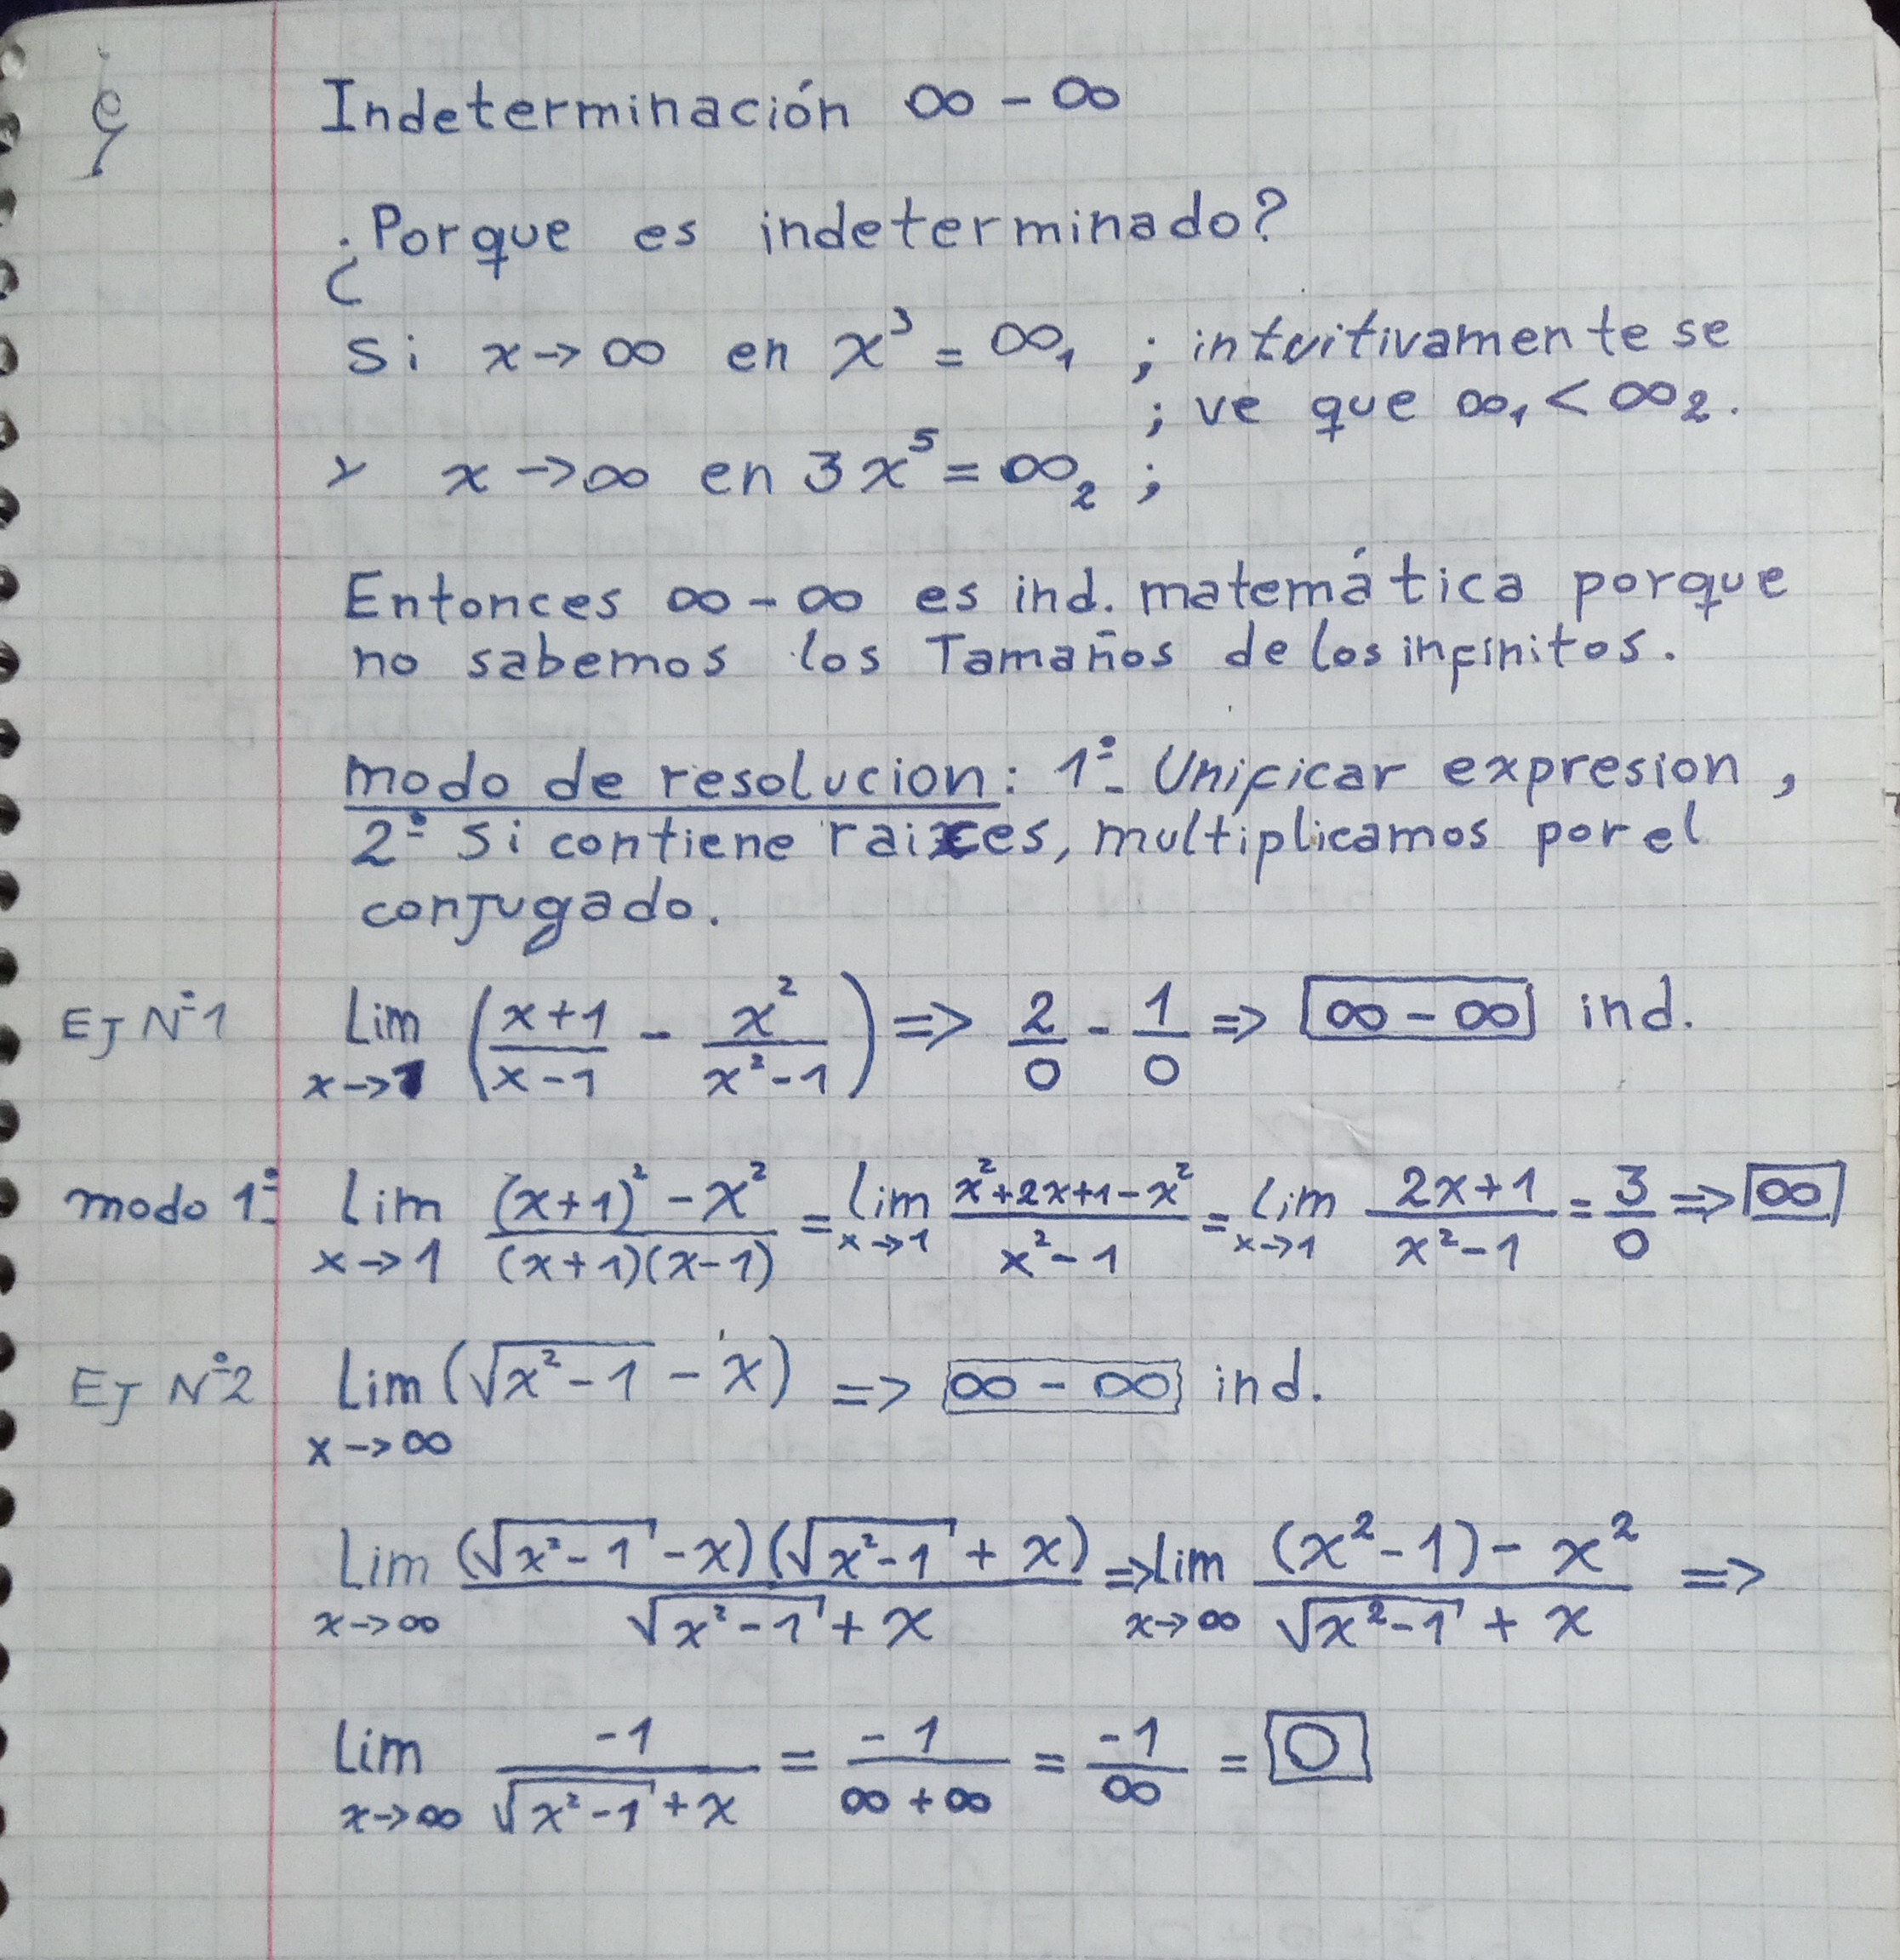 Indeterminación ∞ - ∞
¿Porque es indeterminado?
Si x → ∞ en x³ = ∞₁ ; intuitivamente se
; ve que ∞₁ < ∞₂.
y x → ∞ en 3x⁵ = ∞₂ ;
Entonces ∞ - ∞ es ind. matemática porque
no sabemos los Tamaños de los infinitos.
modo de resolucion: 1º- Unificar expresion,
2º- Si contiene raices, multiplicamos por el
conjugado.
Ej Nº1 Lim x→1 ((x+1)/(x-1) - x²/(x²-1)) => 2/0 - 1/0 => ∞ - ∞ ind.
modo 1º- Lim x→1 ((x+1)² - x²)/((x+1)(x-1)) = Lim x→1 (x²+2x+1-x²)/(x²-1) = Lim x→1 (2x+1)/(x²-1) = 3/0 => ∞
Ej Nº2 Lim x→∞ (√(x²-1) - x) => ∞ - ∞ ind.
Lim x→∞ ((√(x²-1) - x)(√(x²-1) + x))/(√(x²-1) + x) => lim x→∞ ((x²-1) - x²)/(√(x²-1) + x) =>
Lim x→∞ -1/(√(x²-1) + x) = -1/(∞+∞) = -1/∞ = 0